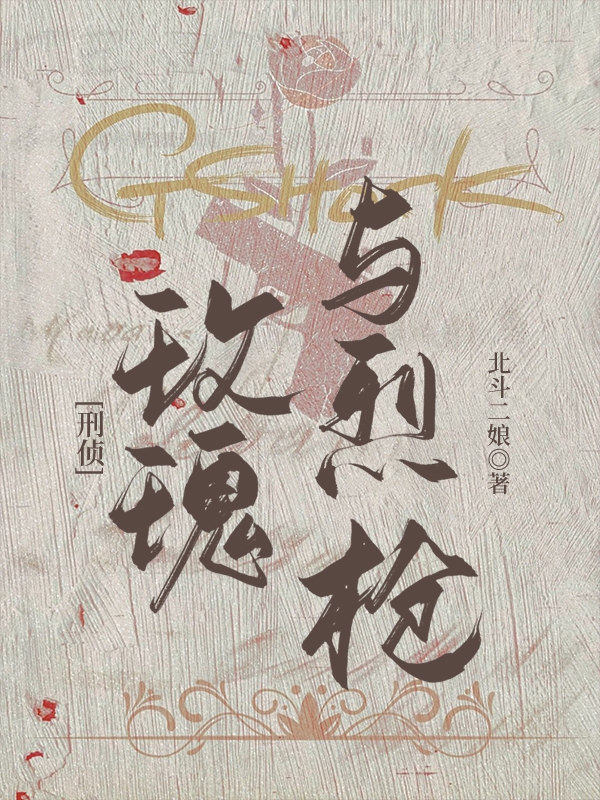 玫瑰
与烈枪
[刑侦]
北斗二娘◎著